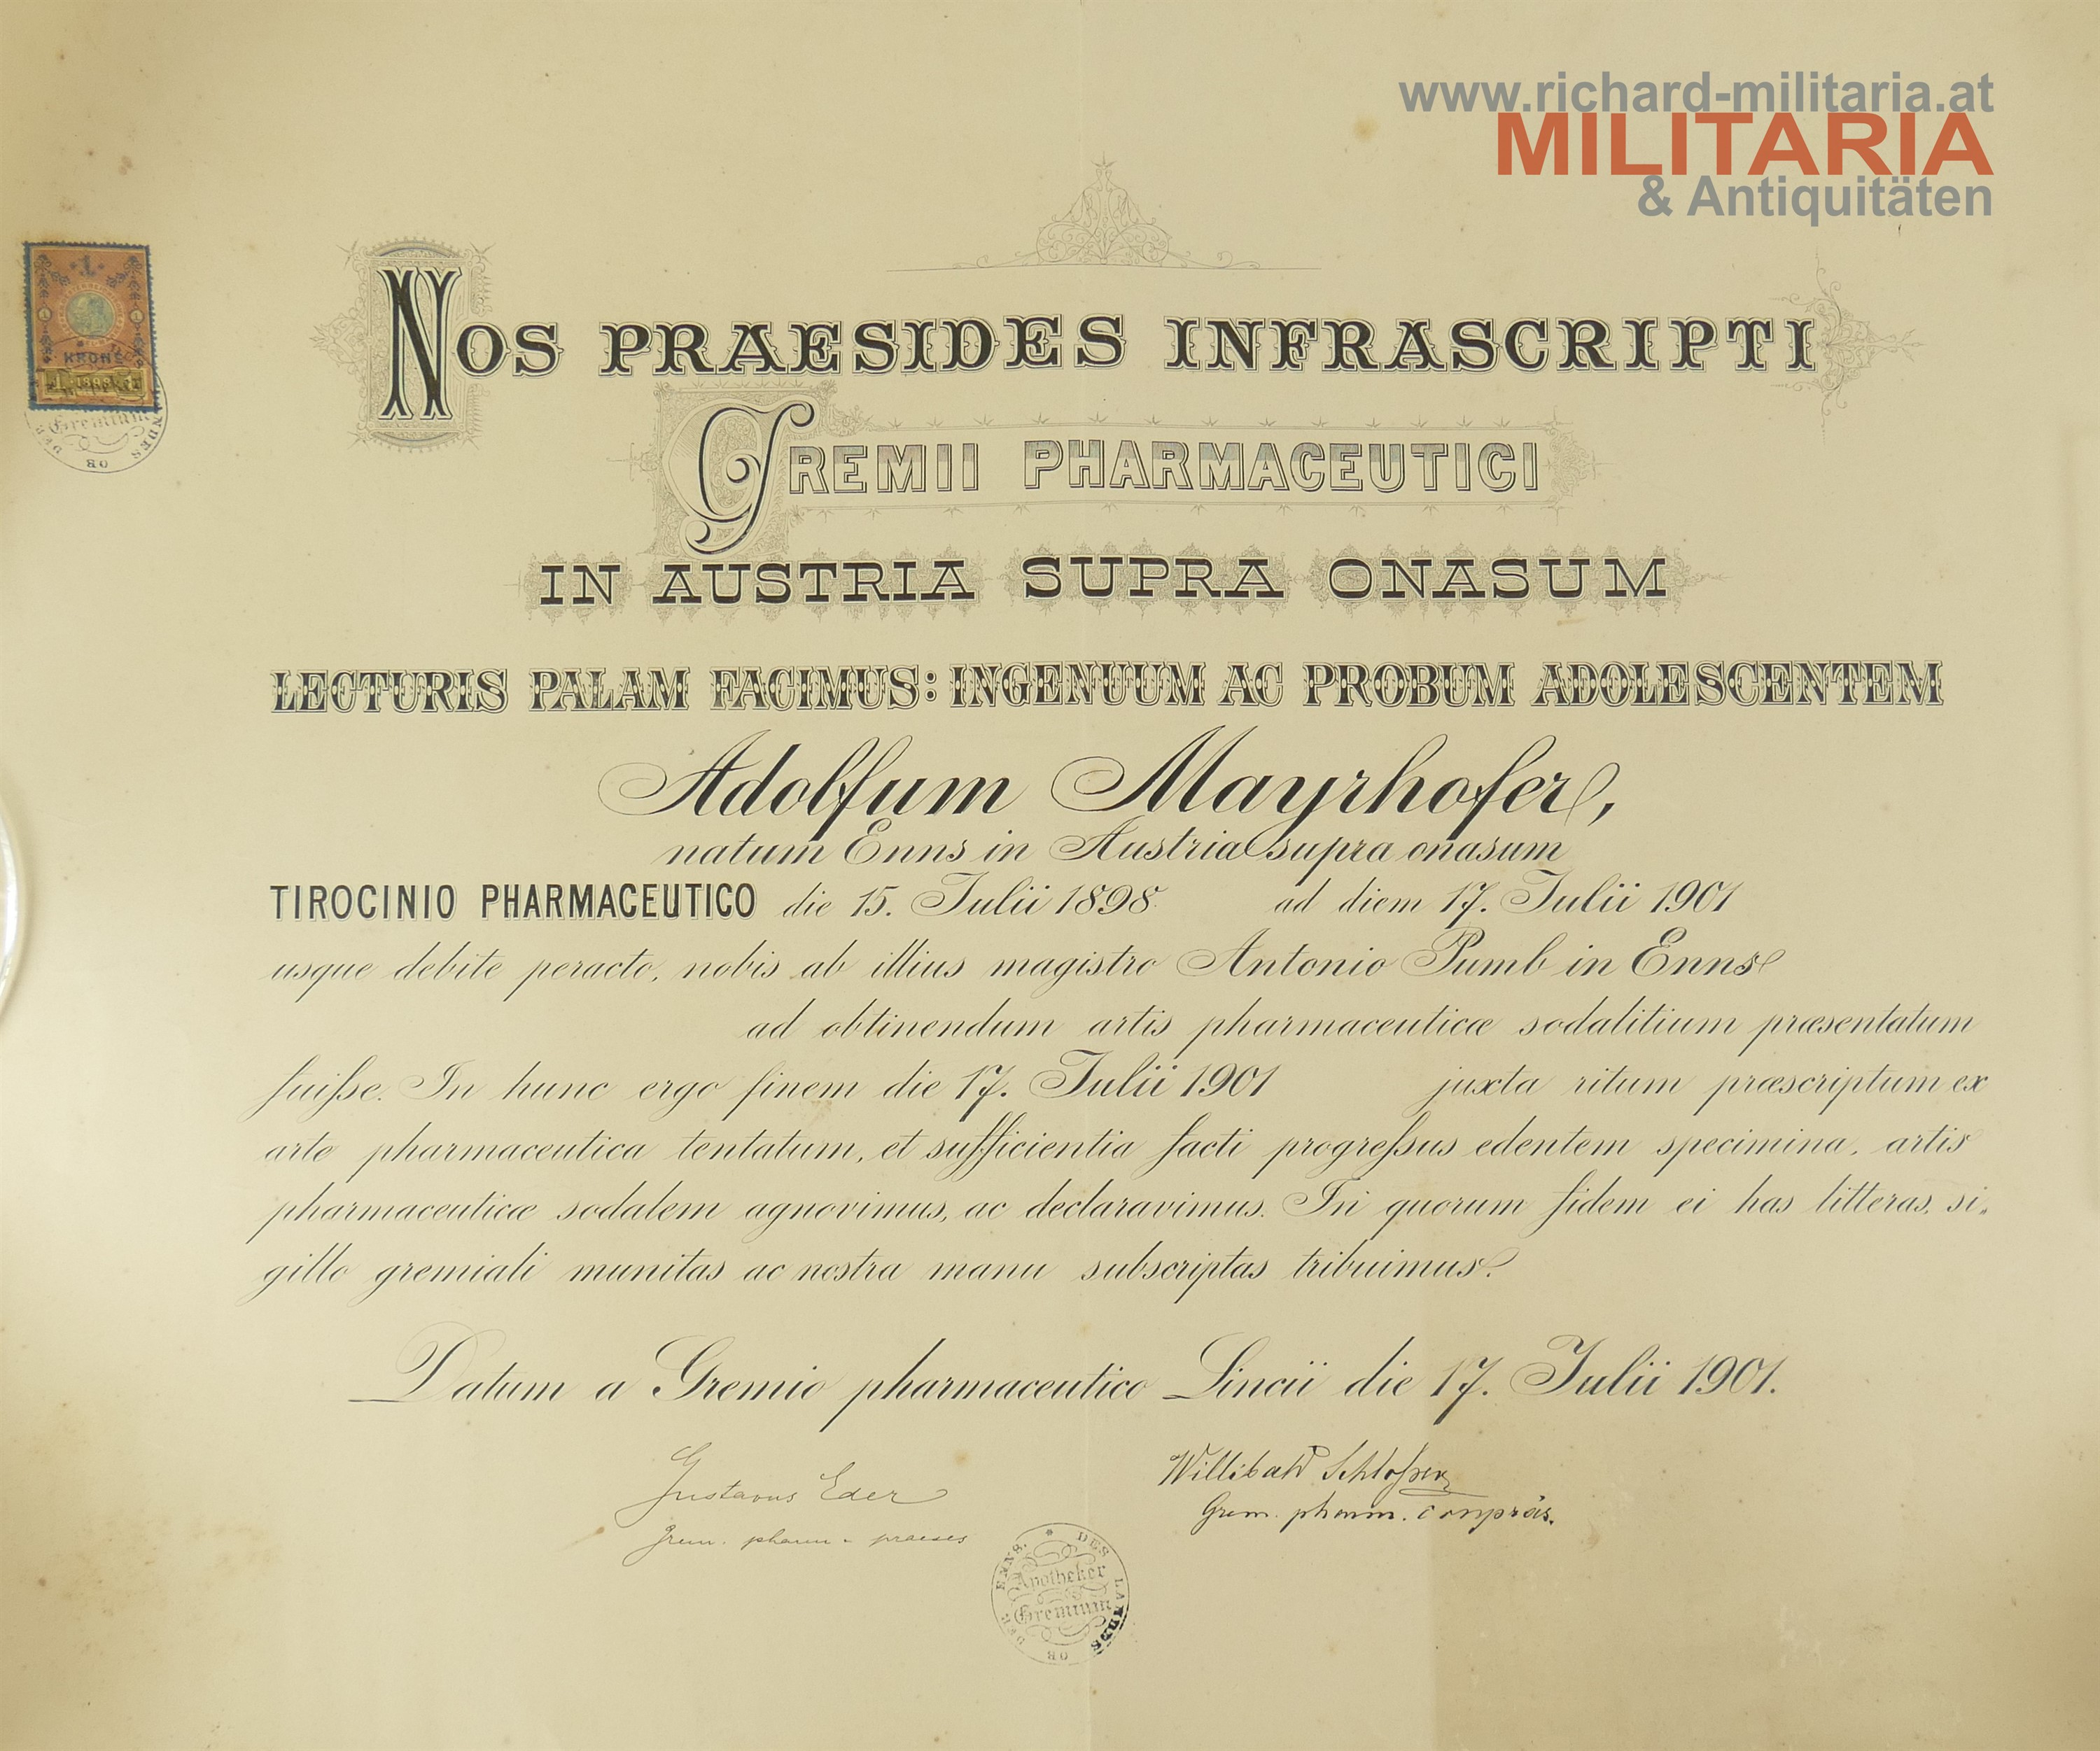 www.richard-militaria.at
MILITARIA
& Antiquitäten
1
KRONE
1898
Gremium
OB DER
LANDES
NOS PRAESIDES INFRASCRIPTI
GREMII PHARMACEUTICI
IN AUSTRIA SUPRA ONASUM
LECTURIS PALAM FACIMUS: INGENUUM AC PROBUM ADOLESCENTEM
Adolfum Mayrhofer,
natum Enns in Austria supra onasum
TIROCINIO PHARMACEUTICO die 15. Julii 1898 ad diem 17. Julii 1901
usque debite peracto, nobis ab illius magistro Antonio Pumb in Enns
ad obtinendum artis pharmaceuticæ sodalitium præsentatum
fuiſse. In hunc ergo finem die 17. Julii 1901 juxta ritum præscriptum ex
arte pharmaceutica tentatum, et sufficientia facti progreſsus edentem specimina, artis
pharmaceuticæ sodalem agnovimus, ac declaravimus. In quorum fidem ei has litteras, si„
gillo gremiali munitas ac nostra manu subscriptas tribuimus.
Datum a Gremio pharmaceutico Lincii die 17. Julii 1901.
Gustavus Eder
Grem. pharm. praeses
Willibald Schloſser
Grem. pharm. Conpräs.
* DES LANDES OB DER ENNS.
Apotheker
Gremium